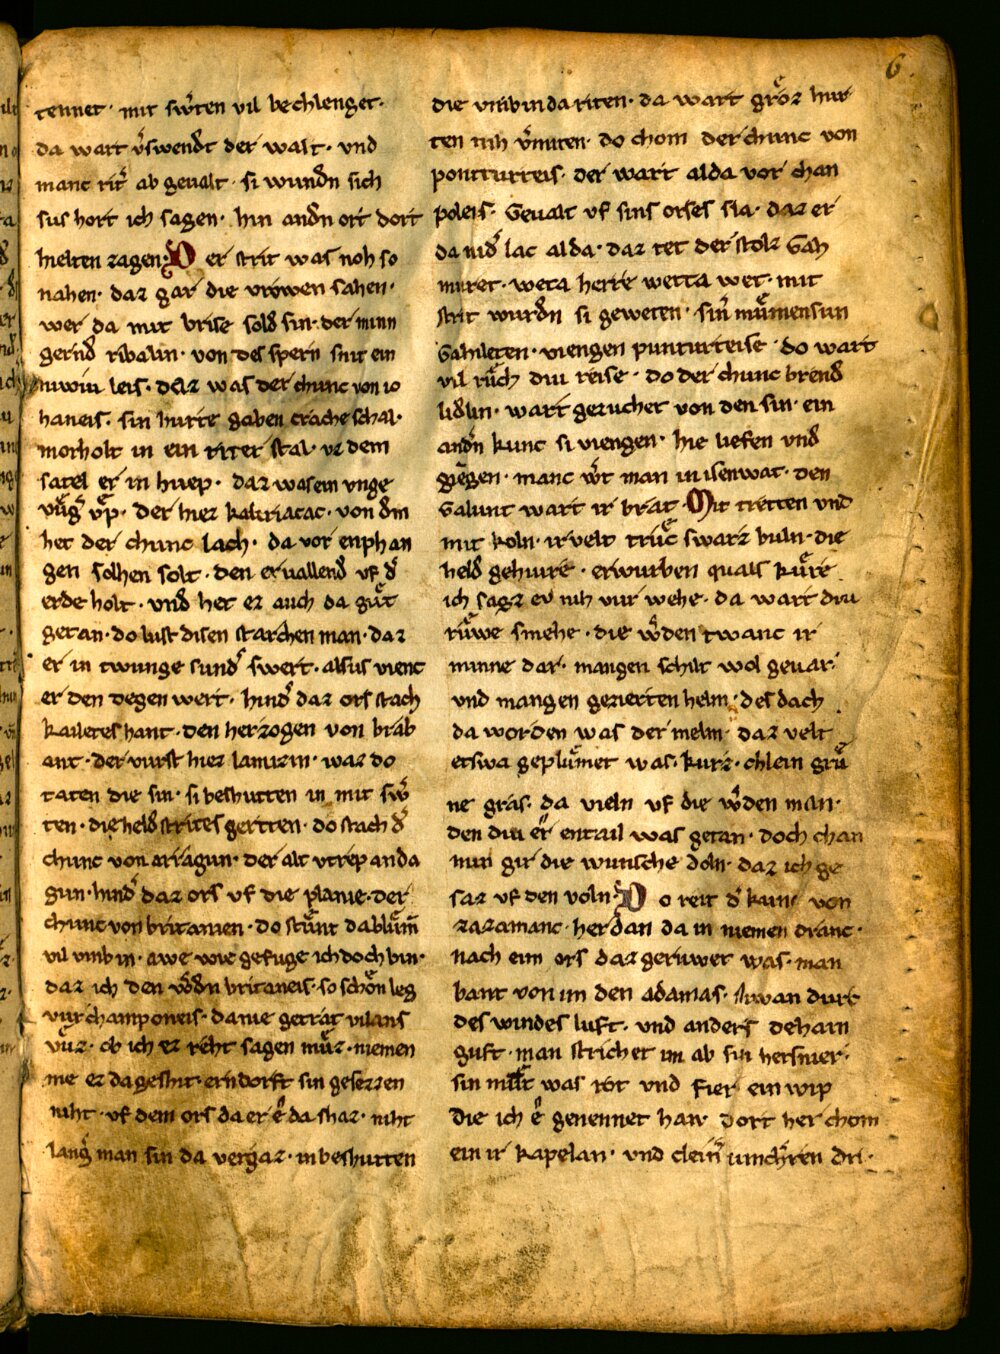 6
tennet · mit sw̾ten vil bechlenget ·
da wart v̾swendt der walt · vnd
manc rit̾ ab geualt · si wundn̄ sich
sus hort ich sagen · hin andn̄ ort dort
hielten zagen · D er strit was noh so
nahen · daz gar die vrowen sahen ·
wer da mit brise sold sin · der minn
gernd̾ ribalin · von des spern snit ein
niwiu leis · daz was der chunc von io
haneis · sin hurte gaben crache schal ·
morholt in ein riter stal · vz dem
satel er in huep · daz was ein vnge
vͤg̾ vͦp · der hiez kaliriacac · von dm̄
het der chunc lach · da vor enphan
gen solhen solt · den er uallend vf d̾
erde holt · vnd het ez auch da guͤt
getan · do lust disen starchen man · daz
er in twunge sund̾ swert · alsus vienc
er den degen wert · hind̾ daz ors stach
kailetes hant · den herzogen von brab
ant · der vurst hiez lanuzin · waz do
taten die sin · si beshutten in mit sw̾
ten · die held strites gertten · do stach d̾
chunc von arragun · der alt vtrep anda
gun · hind̾ daz ors vf die planie · der
chunc von britanien · do stuͤnt da bluͤm̄
vil vmb in · awe wie gefuge ich doch bin ·
daz ich den w̾dn̄ britaneis · so schoͤn leg
vuͤr champoneis · da nie getrat vilans
vuͤz · ob ich ez reht sagen muͤz · niemen
me ez da geshit · ern dorft sin gesezzen
niht · vf dem ors da er e̾ da shaz · niht
lang̾ man sin da vergaz · in beshutten
die vmb in da riten · da wart groͤz hur
ten nih v̾miten · do chom der chunc von
ponturteis · der wart alda vor chan
poleis · Geualt vf sins orses sla · daz er
da nid̾ lac alda · daz tet der stolz Gah
muret · weta herre wetta wet · mit
strit wurdn̄ si geweten · sin̾ muͤmen sun
Gahileten · viengen punturteise · do wart
vil ruͤch diu reise · do der chunc brend
lidlin · wart gezuchet von den sin · ein
andn̄ kunc si viengen · hie liefen vnd
giengen · manc w̾t man in isenwat · den
Galunt wart ir brat · Mit tretten vnd
mit koln · ir velt truͤc swarz buln · die
held gehiure · erwurben quals kuͤre
ich sagz ev nih vur wehe · da wart diu
ruͤwe smehe · die w̾den twanc ir
minne dar · mangen schilt wol geuar ·
vnd mangen gezierten helm · des dach
da worden was der melm · daz velt
etswa gepluͤmet was · kurz · chlein gruͤ
ne gras · da vieln vf die w̾den man ·
den diu er̾ entail was getan · doch chan
nun gir die wunsche doln · daz ich ge
saz vf den voln · D o reit d̾ kunc von
zazamanc · her dan da in niemen dranc ·
nach eim ors daz geruwet was · man
bant von im den adamas · Niwan durh
des windes luft · vnd anders dehain
guft · man stricht er im ab sin hersnier ·
sin munt was rot vnd fier ein wip
die ich e̾ genennet han · Dort her chom
ein ir kapelan · vnd clein̾ iunch̾ren dri ·